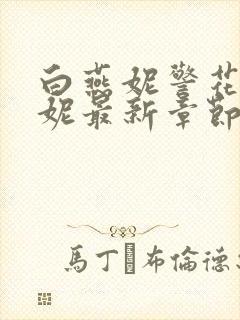 白燕妮警花
妮最新章節
馬丁�布倫德